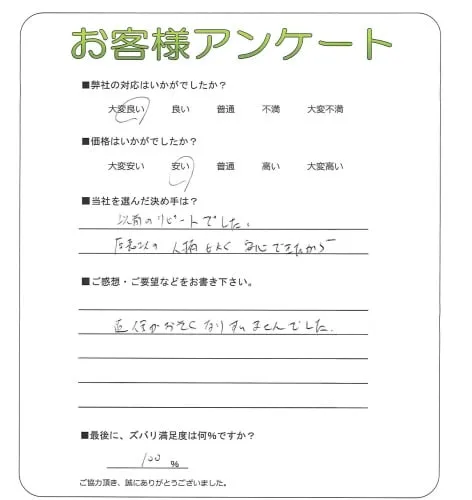 お客様アンケート
■弊社の対応はいかがでしたか？
大変良い 良い 普通 不満 大変不満
■価格はいかがでしたか？
大変安い 安い 普通 高い 大変高い
■当社を選んだ決め手は？
以前のリピートでした。
人柄もよく 安心できたから
■ご感想・ご要望などをお書き下さい。
返信がおそくなりすいませんでした.
■最後に、ズバリ満足度は何％ですか？
100 %
ご協力頂き、誠にありがとうございました。